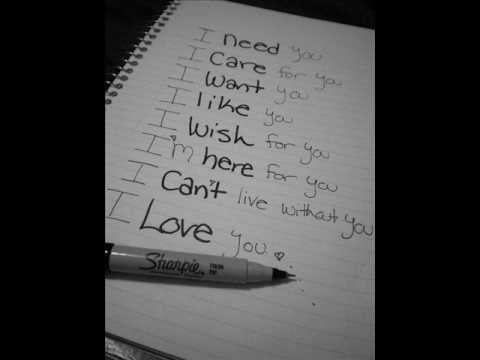 I need you
I care for you
I want you
I like you
I wish for you
I'm here for you
I can't live without you
I Love you
Sharpie